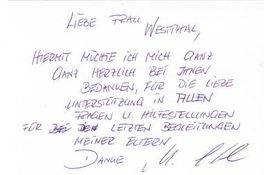 LIEBE FRAU
WESTPHAL,
HIERMIT MÖCHTE ICH MICH GANZ
GANZ HERZLICH BEI IHNEN
BEDANKEN, FÜR DIE LIEBE
UNTERSTÜTZUNG IN ALLEN
FRAGEN U. HILFESTELLUNGEN
FÜR BEI DEN LETZTEN BEGLEITUNGEN
MEINER ELTERN.
DANKE